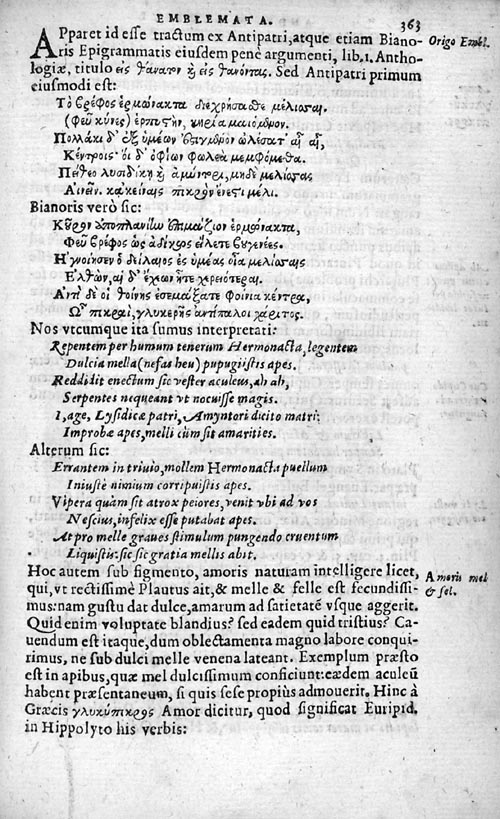 EMBLEMATA.
363
APparet id esse tractum ex Antipatri, atque etiam Biano-
ris Epigrammatis eiusdem penè argumenti, lib. 1. Antho-
Origo Embl.
logiæ, titulo εἰς θάνατον ϗ εἰς θανόντας. Sed Antipatri primum
eiusmodi est:
Τὸ βρέφος ἑρμώνακτα διεχρήσασθε μέλισσαι.
(φεῦ κύνες) ἑρπυστὴν, κηρία μαιόμενον.
Πολλάκι δ' ἐξ ὑμέων ἐψισμένον ὠλέσατ' αἶ αἶ,
Κέντροις· οἱ δ' ὀφίων φωλεὰ μεμφόμεθα.
Πείθεο λυσιδίκῃ ϗ ἀμύντορι, μηδὲ μελίσσας
Αἰνεῖν. κἀκείναις πικρὸν ἔνεστι μέλι.
Bianoris verò sic:
Κοῦρον ἀποπλανίην ἐπιμάζιον ἑρμώνακτα,
Φεῦ βρέφος ὡς ἀδίκως εἵλετε βουγενέες.
Ἠγνοίησεν ὁ δείλαιος ἐς ὑμέας οἷα μελίσσας
Ελθὼν, αἱ δ' ἔχεων ἦτε χερειότεραι.
Αντὶ δέ οἱ θοίνης ἐσεμάξατε φοίνια κέντρα,
Ὦ πικραὶ, γλυκερῆς ἀντίπαλοι χάριτος.
Nos vtcumque ita sumus interpretati:
Repentem per humum tenerum Hermonacta, legentem
Dulcia mella (nefas heu) pupugistis apes.
Reddidit enectum sic vester aculeus, ah ah,
Serpentes nequeant vt nocuisse magis.
I, age, Lysidicæ patri, Amyntori dicito matri:
Improbæ apes, melli cùm sit amarities.
Alterum sic:
Errantem in triuio, mollem Hermonacta puellum
Iniustè nimium corripuistis apes.
Vipera quàm sit atrox peiores, venit vbi ad vos
Nescius, infelix esse putabat apes.
At pro melle graues stimulum pungendo cruentum
Liquistis: sic sic gratia mellis abit.
Hoc autem sub figmento, amoris naturam intelligere licet,
Amoris mel
qui, vt rectissimè Plautus ait, & melle & felle est fecundissi-
& fel.
mus: nam gustu dat dulce, amarum ad satietatē vsque aggerit.
Quid enim voluptate blandius? sed eadem quid tristius? Ca-
uendum est itaque, dum oblectamenta magno labore conqui-
rimus, ne sub dulci melle venena lateant. Exemplum præsto
est in apibus, quæ mel dulcissimum conficiunt: eædem aculeū
habent præsentaneum, si quis sese propiùs admouerit. Hinc à
Græcis γλυκύπικρος Amor dicitur, quod significat Euripid.
in Hippolyto his verbis: